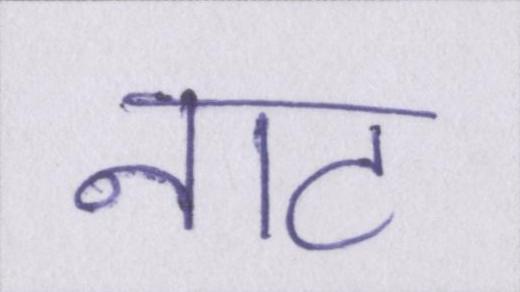 नाट